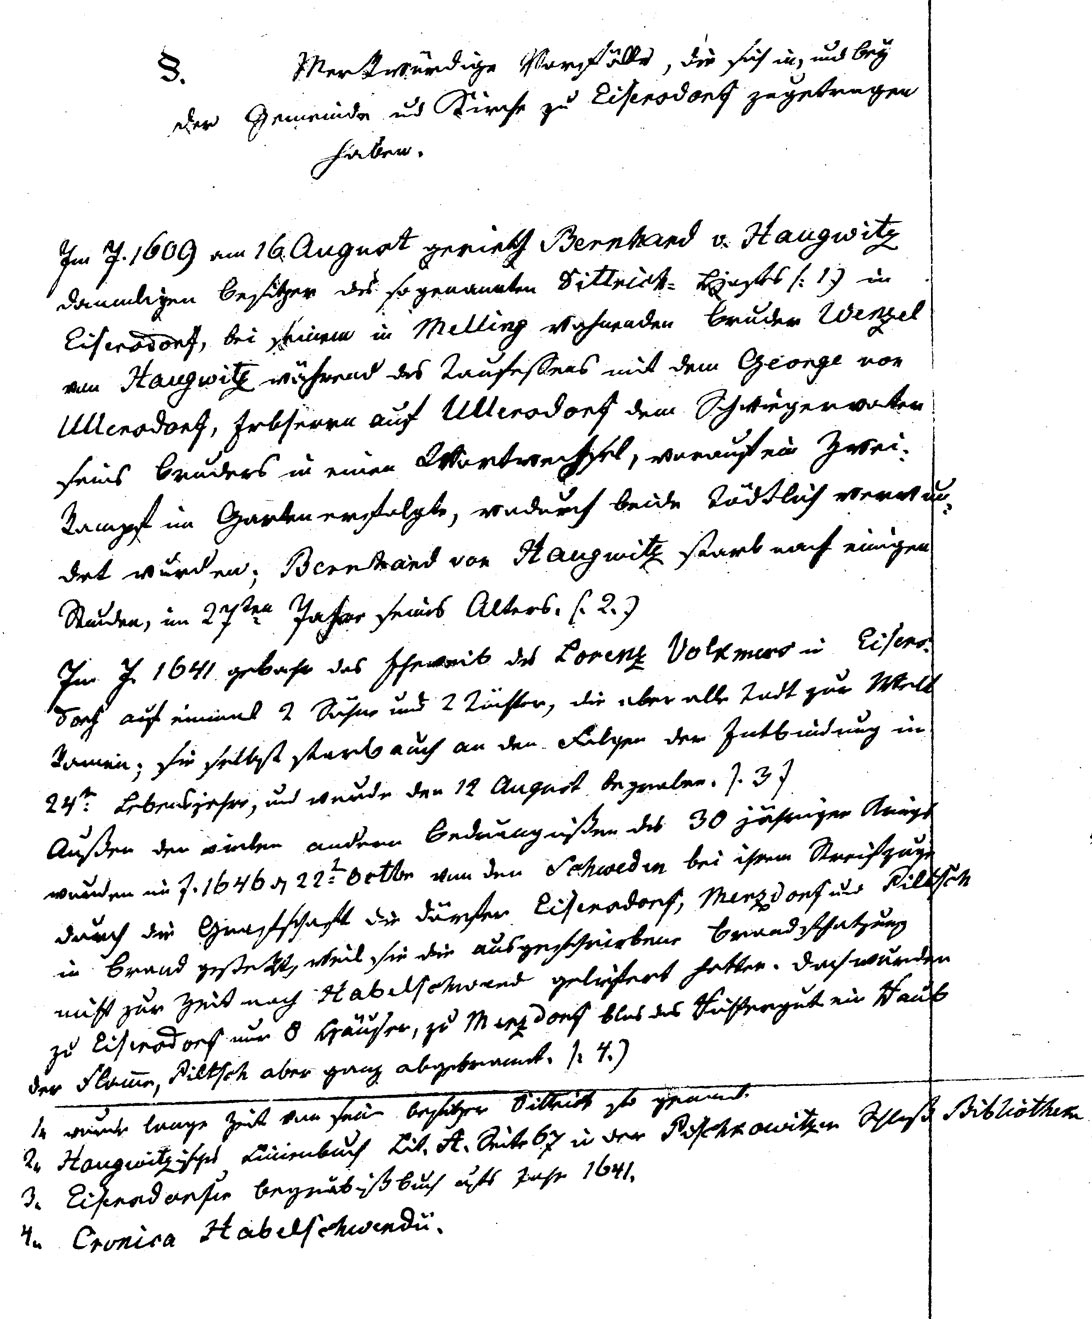 §. Merkwürdige Vorfälle, die sich in, und bey
der Gemeinde ud Kirche zu Eisersdorf zugetragen
haben.
Im J. 1609 am 16 August gerieth Bernhard v. Haugwitz
damaligen Besitzer des sogenannten Dittrich= Hofes (: 1.) in
Eisersdorf, bei seinem in Melling wohnenden Bruder Wenzel
von Haugwitz während des Taufessens mit dem George von
Ullersdorf, Erbherrn auf Ullersdorf dem Schwiegervater
seins Bruders in einen Wortwechsel, worauf ein Zwei=
kampf im Garten erfolgte, wodurch beide tödtlich verwun=
det wurden; Bernhard von Haugwitz starb nach einigen
Stunden, im 27ten Jahre seins Alters. (: 2.)
Im J. 1641 gebahr das Eheweib des Lorenz Volkmers in Eisers=
dorf auf einmal 2 Söhne und 2 Töchter, die aber alle todt zur Welt
kamen; sie selbst starb auch an den Folgen der Entbindung im
24tn Lebensjahre, und wurde den 12 August begraben. (: 3)
Außer den vielen andern Bedrängnißen des 30 jährigen Kriegs
wurden im J. 1646 d 22t Octbr von den Schweden bei ihrem Streifzuge
durch die Grafschaft die Dörfer Eisersdorf, Merzdorf und Piltsch
in Brand gesteckt, weil sie die ausgeschriebene Brandschatzung
nicht zur Zeit nach Habelschwerd geliefert hatten. Doch wurden
zu Eisersdorf nur 8 Häuser, zu Merzdorf blos das Richtergut ein Raub
der Flamme, Piltsch aber ganz abgebrannt. (: 4.)
1. wurde lange Zeit von sein Besitzer Dittrich so genannt.
2. Haugwitzisches Linienbuch Lit. A. Seite 67 in der Pischkowitzer Schloß Bibliothek
3. Eisersdorfer Begräbnißbuch aufs Jahr 1641.
4. Cronica Habelschwerdii.